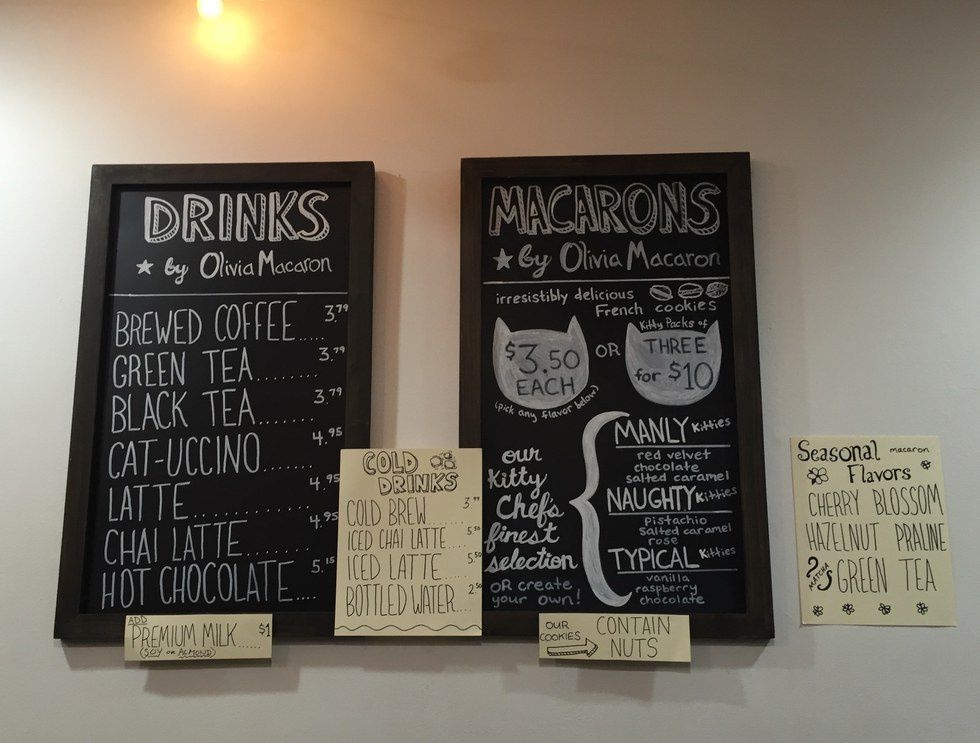 DRINKS
★ by Olivia Macaron
BREWED COFFEE..... 3.79
GREEN TEA........ 3.79
BLACK TEA........ 3.79
CAT-UCCINO....... 4.95
LATTE............... 4.95
CHAI LATTE........ 4.95
HOT CHOCOLATE.... 5.15
ADD
PREMIUM MILK..... $1
(SOY or ALMOND)
COLD DRINKS
COLD BREW..... 3.99
ICED CHAI LATTE.... 5.50
ICED LATTE.... 5.50
BOTTLED WATER.... 2.50
MACARONS
★ by Olivia Macaron
irresistibly delicious
French cookies
$3.50
EACH
(pick any flavor below)
OR
Kitty Packs of
THREE
for $10
our
Kitty
Chef's
finest
selection
OR create
your own!
MANLY Kitties
red velvet
chocolate
salted caramel
NAUGHTY Kitties
Pistachio
Salted caramel
rose
TYPICAL Kitties
vanilla
raspberry
chocolate
OUR
COOKIES
CONTAIN
NUTS
Seasonal macaron
Flavors
CHERRY BLOSSOM
HAZELNUT PRALINE
MATCHA
GREEN TEA